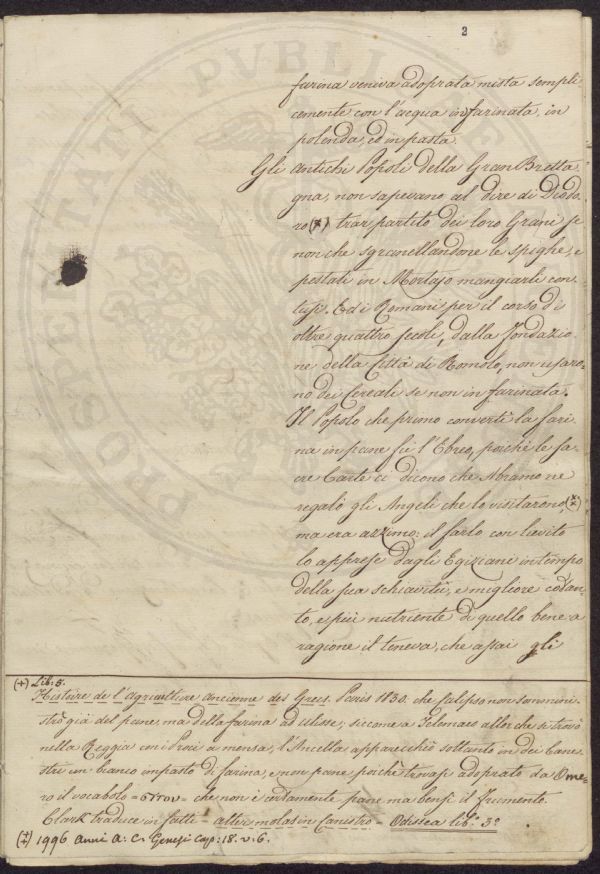 2
farina veniva adoprata mista sempli-
cemente con l'acqua in farinata, in
polenda, ed in pasta.
Gli Antichi Popoli della Gran Bretta-
gna, non sapevano al dire di Diodo-
ro (+) trar partito dei loro Grani se
non che sgranellandone le spighe, e
pestati in Mortajo mangiarli con-
tusi. Ed i Romani per il corso di
oltre quattro secoli, dalla fondazio-
ne della Città di Romolo, non usaro-
no dei Cereali se non in farinata.
Il Popolo che primo convertì la fari-
na in pane fu l'Ebreo, poichè le sa-
cre Carte ci dicono che Abramo ne
regalò gli Angeli che lo visitarono,
ma era azzimo: il farlo con lievito
lo apprese dagli Egiziani in tempo
della sua schiavitù, e migliore cotan-
to, e più nutriente di quello bene a
ragione il teneva, che assai gli
(+) Lib: 5.
Histoire de l'agriculture ancienne des Grecs. Paris 1830. che Calipso non sommini-
strò già del pane, ma della farina ad Ulisse; siccome a Telemaco allor che si trovò
nella Reggia con i Proci a mensa, l'Ancella apparecchiò soltanto in dei Cane-
stri un bianco impasto di farina, e non pane poichè trovasi adoprato da Ome-
ro il vocabolo = σιτον = che non è certamente pane ma bensì il frumento.
Clark traduce in fatti = alter molas in Canistro = Odissea lib.º 3º
1996 Anni A: C. Genesi Cap: 18. v. 6.
PROSPERITATI PVBLICAE